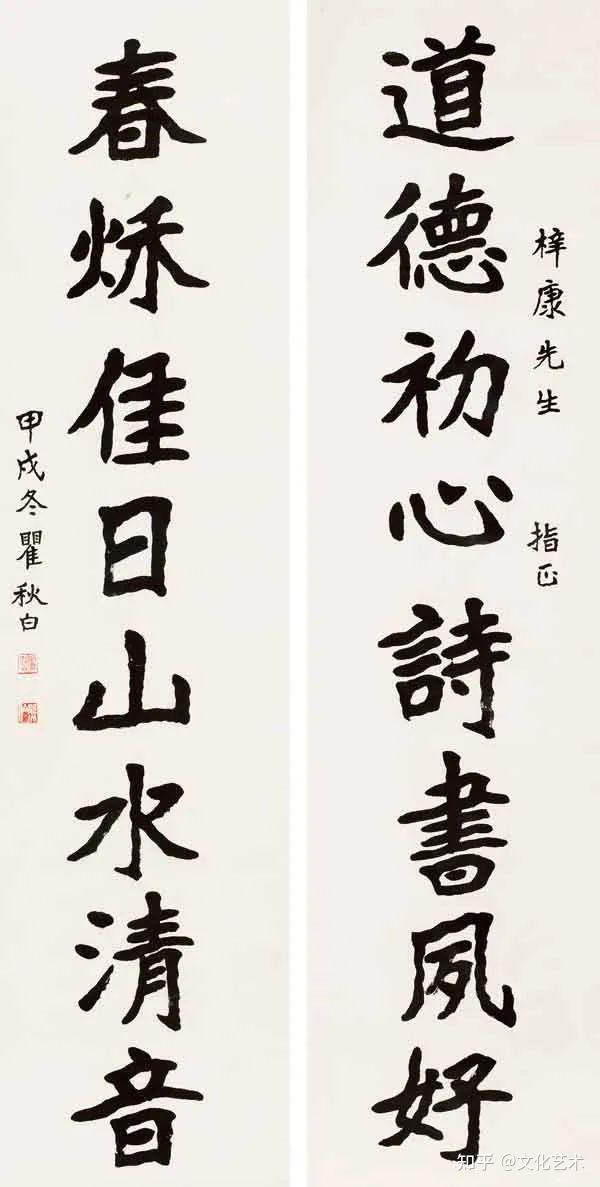 梓康先生 指正
道德初心詩書夙好
春秌佳日山水清音
甲戌冬瞿秋白
知乎 @文化艺术